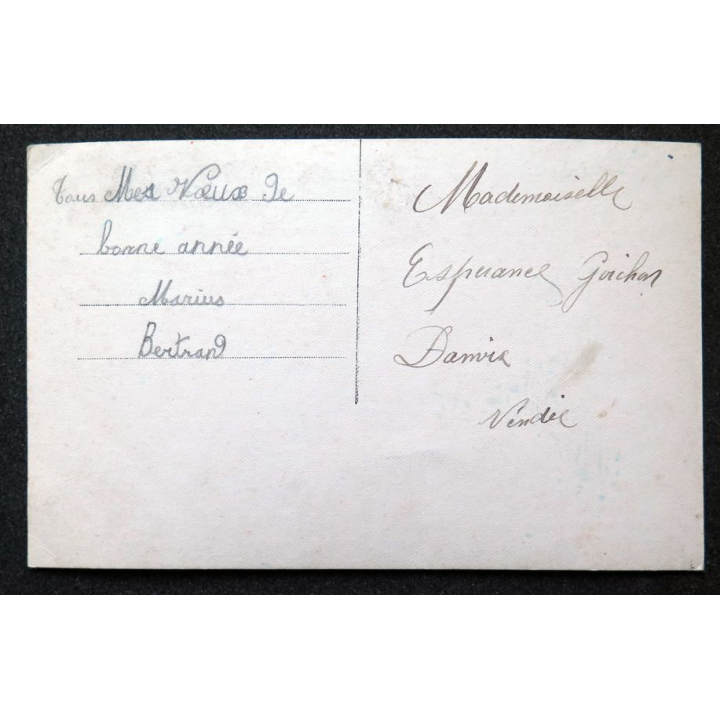 Tous Mes Vœux de
bonne année
Marius
Bertrand
Mademoiselle
Esperance Guichon
Damvix
Vendée